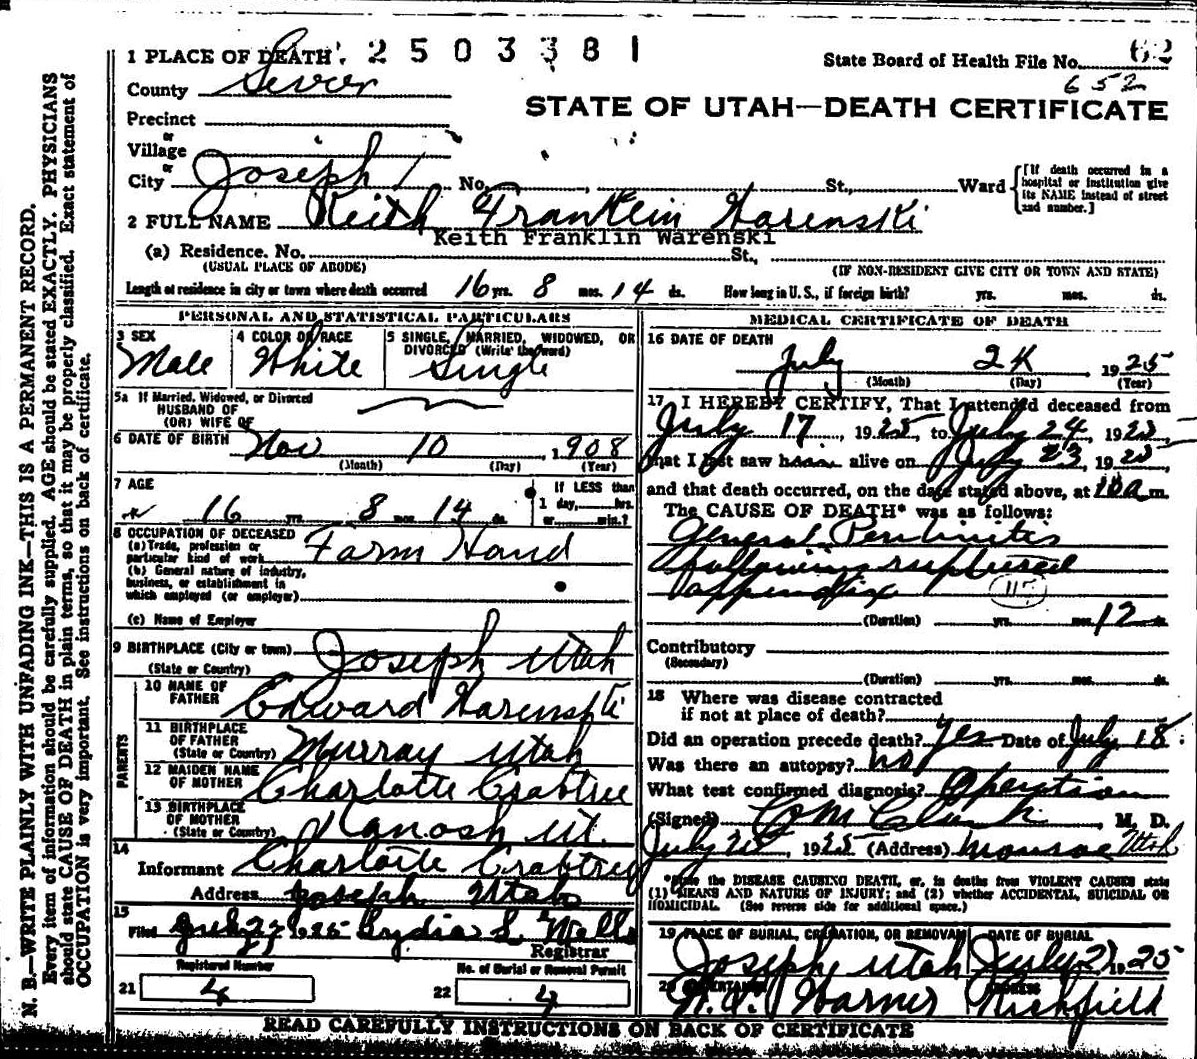 1 PLACE OF DEATH 2503381
State Board of Health File No. 62
652
County Sevier
STATE OF UTAH—DEATH CERTIFICATE
Precinct
or
Village
or
City Joseph No. , St., Ward
[If death occurred in a hospital or institution give its NAME instead of street and number.]
2 FULL NAME Keith Franklin Warenski
Keith Franklin Warenski
(a) Residence. No. St.,
(USUAL PLACE OF ABODE) (IF NON-RESIDENT GIVE CITY OR TOWN AND STATE)
Length of residence in city or town where death occurred 16 yrs. 8 mos. 14 ds. How long in U. S., if foreign birth? yrs. mos. ds.
PERSONAL AND STATISTICAL PARTICULARS
3 SEX
Male
4 COLOR OR RACE
White
5 SINGLE, MARRIED, WIDOWED, OR DIVORCED (Write the word)
Single
5a If Married, Widowed, or Divorced
HUSBAND OF
(OR) WIFE OF
6 DATE OF BIRTH Nov 10, 1908
(Month) (Day) (Year)
7 AGE
16 yrs. 8 mos. 14 ds.
If LESS than
1 day, hrs.
or min.?
8 OCCUPATION OF DECEASED
(a) Trade, profession or
particular kind of work Farm Hand
(b) General nature of industry,
business, or establishment in
which employed (or employer)
(c) Name of Employer
9 BIRTHPLACE (City or town)
(State or Country) Joseph Utah
PARENTS
10 NAME OF
FATHER Edward Warenski
11 BIRTHPLACE
OF FATHER
(State or Country) Murray Utah
12 MAIDEN NAME
OF MOTHER Charlotte Crabtree
13 BIRTHPLACE
OF MOTHER
(State or Country) Kanosh Ut.
14
Informant Charlotte Crabtree
Address Joseph Utah
15
Filed 27 1925 Lydia L Wells
Registrar
Registered Number
21 4
No. of Burial or Removal Permit
22 4
MEDICAL CERTIFICATE OF DEATH
16 DATE OF DEATH
July 24 1925
(Month) (Day) (Year)
17 I HEREBY CERTIFY, That I attended deceased from
July 17, 1925, to July 24, 1925,
that I last saw h alive on July 23, 1925
and that death occurred, on the date stated above, at 10 a m.
The CAUSE OF DEATH* was as follows:
General Peritonitis
following ruptured
appendix 117
(Duration) yrs. mos. 12 ds.
Contributory
(Secondary)
(Duration) yrs. mos. ds.
18 Where was disease contracted
if not at place of death?
Did an operation precede death? Yes Date of July 18.
Was there an autopsy? no
What test confirmed diagnosis? Operation
(Signed) Clark, M. D.
July 25, 1925 (Address) Monroe Utah
*State the DISEASE CAUSING DEATH, or, in deaths from VIOLENT CAUSES state
(1) MEANS AND NATURE OF INJURY; and (2) whether ACCIDENTAL, SUICIDAL OR
HOMICIDAL. (See reverse side for additional space.)
19 PLACE OF BURIAL, CREMATION, OR REMOVAL DATE OF BURIAL
Joseph, Utah July 27 1925
20 UNDERTAKER ADDRESS
Warner Richfield
READ CAREFULLY INSTRUCTIONS ON BACK OF CERTIFICATE
N. B.—WRITE PLAINLY WITH UNFADING INK—THIS IS A PERMANENT RECORD.
Every item of information should be carefully supplied. AGE should be stated EXACTLY. PHYSICIANS
should state CAUSE OF DEATH in plain terms, so that it may be properly classified. Exact statement of
OCCUPATION is very important. See instructions on back of certificate.